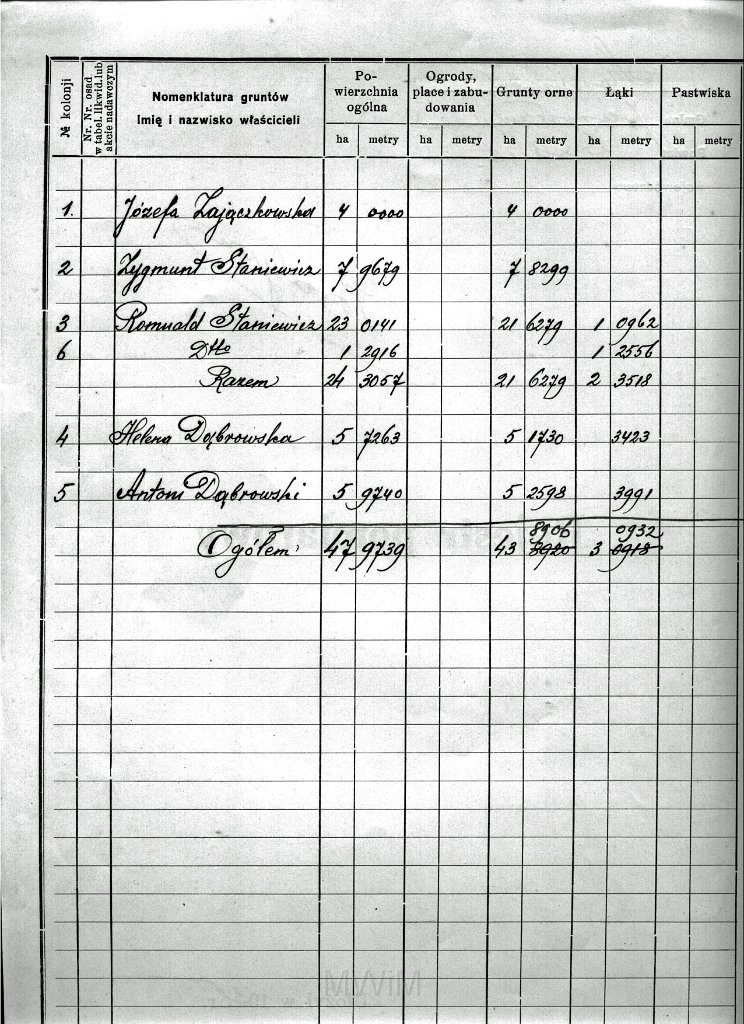 № kolonji
Nr. Nr. osad
w tabel. likwid. lub
akcie nadawczym
Nomenklatura gruntów
Imię i nazwisko właścicieli
Po-
wierzchnia
ogólna
Ogrody,
place i zabu-
dowania
Grunty orne
Łąki
Pastwiska
ha metry ha metry ha metry ha metry ha metry
1. Józefa Zajączkowska 4 0000 4 0000
2 Zygmunt Staniewicz 7 9679 7 8299
3 Romuald Staniewicz 23 0141 21 6279 1 0962
6 Dtto 1 2916 1 2556
Razem 24 3057 21 6279 2 3518
4 Helena Dąbrowska 5 7263 5 1730 3423
5 Antoni Dąbrowski 5 9740 5 2598 3991
8906 0932
Ogółem 47 9739 43 8920 3 0918
MWiM